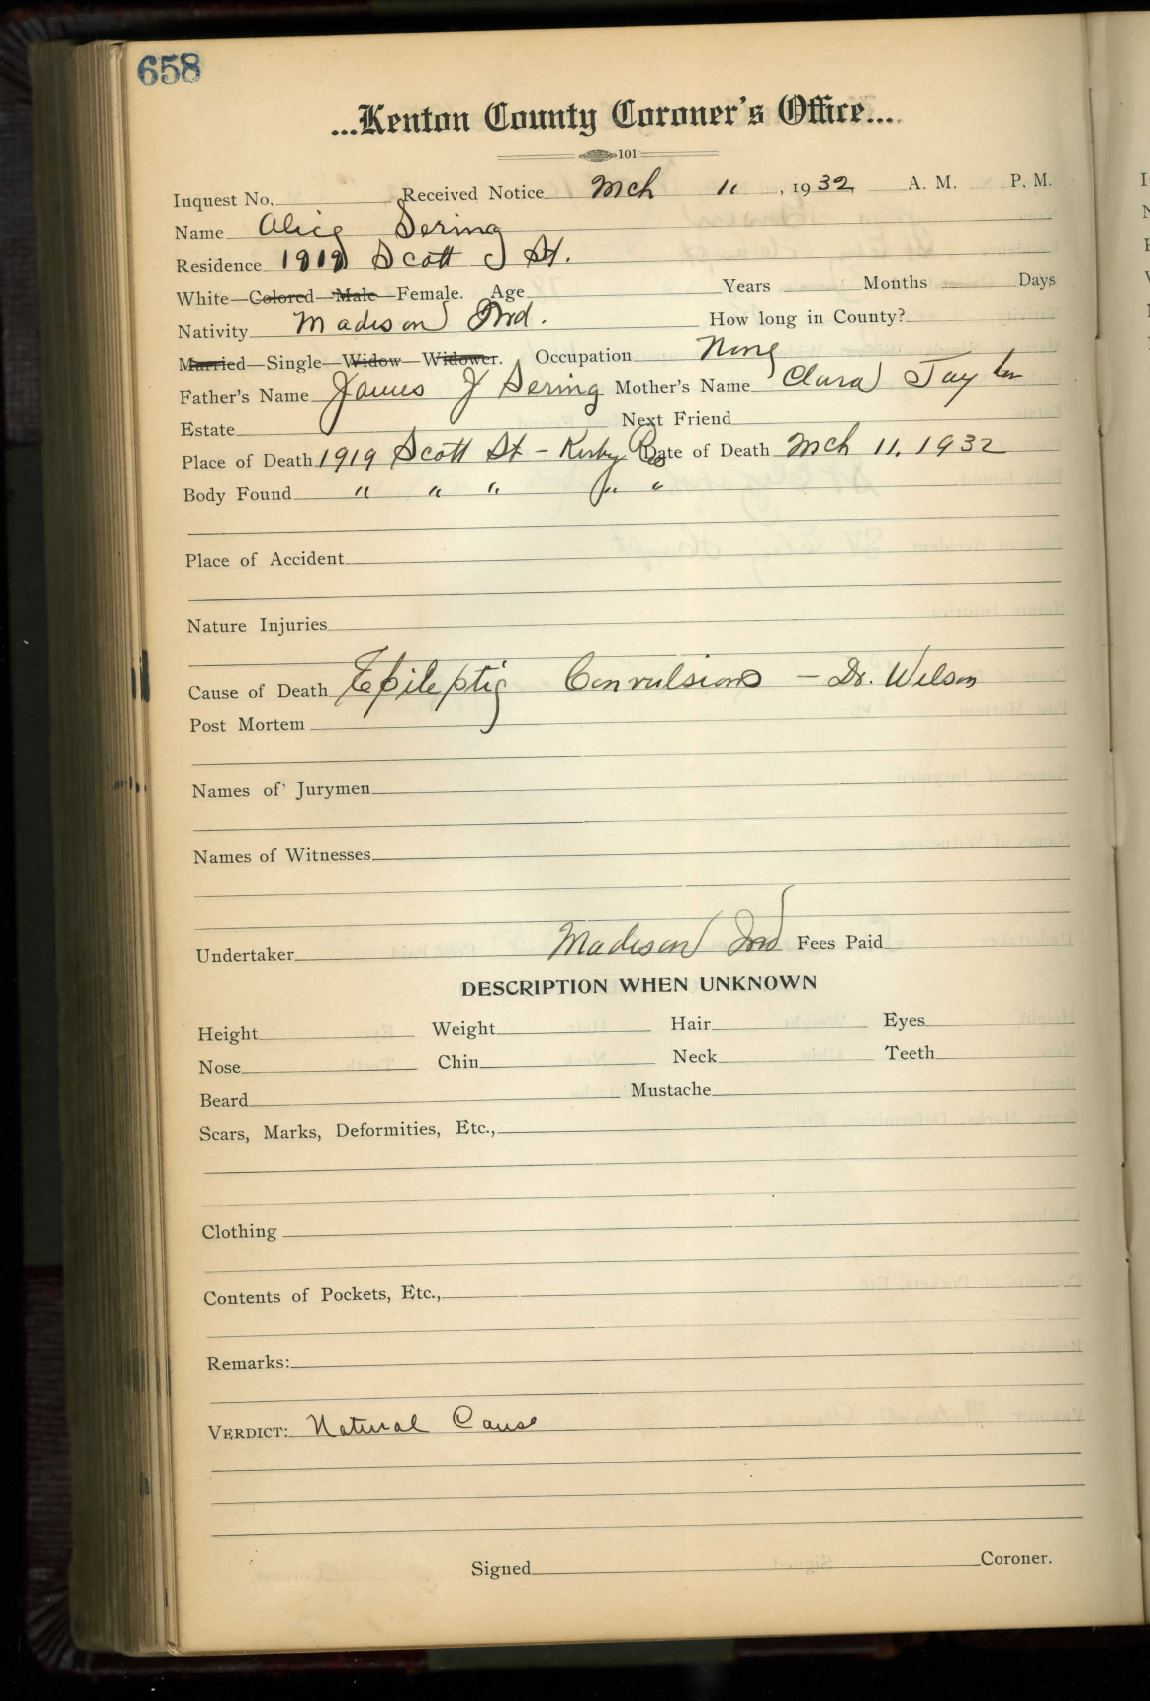 658
...Kenton County Coroner's Office...
101
Inquest No. Received Notice Mch 11, 1932 A. M. P. M.
Name Alice Sering
Residence 1919 Scott St.
White—Colored—Male—Female. Age Years Months Days
Nativity Madison Ind. How long in County?
Married—Single—Widow—Widower. Occupation None
Father's Name James J Sering Mother's Name Clara Taylor
Estate Next Friend
Place of Death 1919 Scott St - Date of Death Mch 11, 1932
Body Found " " " " "
Place of Accident
Nature Injuries
Cause of Death Epileptic Convulsions - Dr. Wilson
Post Mortem
Names of Jurymen
Names of Witnesses
Undertaker Madison Ind Fees Paid
DESCRIPTION WHEN UNKNOWN
Height Weight Hair Eyes
Nose Chin Neck Teeth
Beard Mustache
Scars, Marks, Deformities, Etc.,
Clothing
Contents of Pockets, Etc.,
Remarks:
VERDICT: Natural Cause
Signed Coroner.